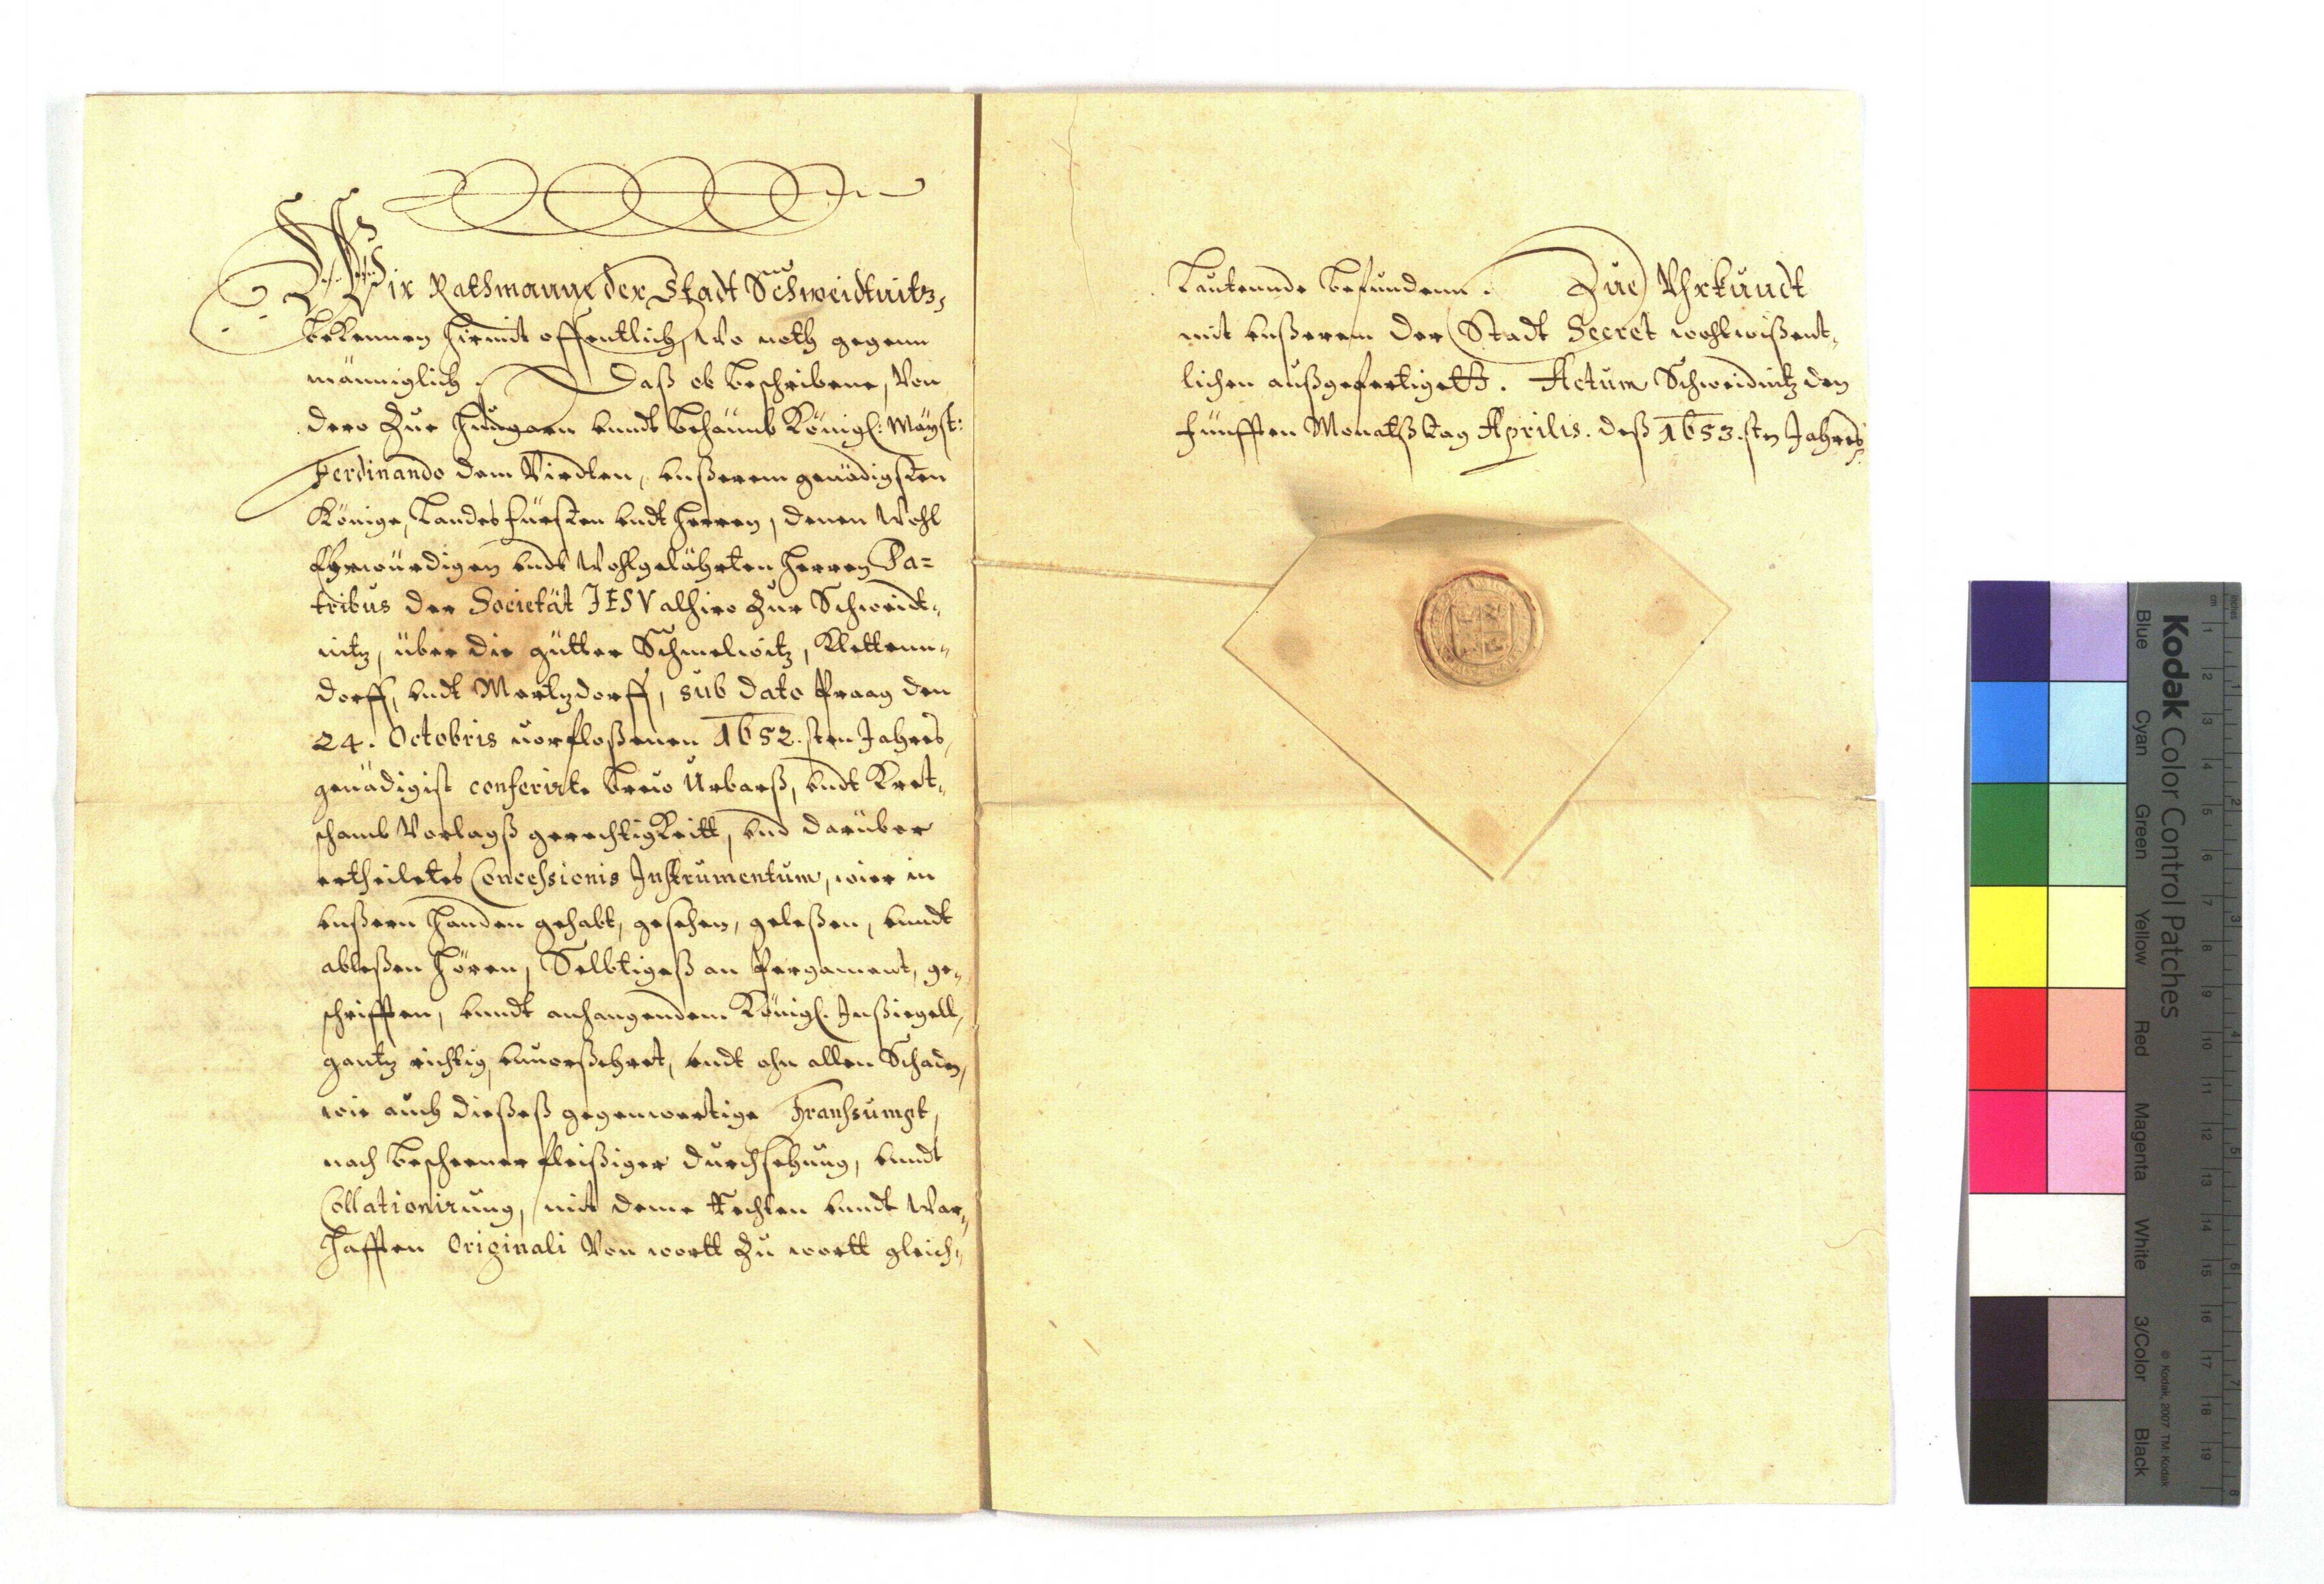 Wir Rathmanne der Stadt Schweidtnitz,
bekennen hirmit offentlich, wo noth gegenn
männiglich. Daß ob beschribene, Von
dero Zue Hungarn vnndt Behäimb Königl: Mayst:
Ferdinando dem Vierdten, vnßerem genädigsten
Könige, Landes fürsten vndt Herren, denen Wohl
Ehrwürdigen vndt Wohlgelährten Herren Pa=
tribus der Societät IESV alhiro Zur Schweidt„
nitz, über die gütter Schmelwitz, Klettenn„
dorff, vndt Mertzdorff, sub dato Praag den
24. Octobris verfloßenen 1652. sten Jahres,
genädigist conferirte Brew Urbarß, vndt Kret„
schamb Verlagß gerechtigkeitt, vnd darüber
ertheiletes Concessionis Instrumentum, wier in
vnßern Handen gehabt, gesehen, geleßen, vnndt
ableßen hören, Selbtigeß an Pergament, ge„
schrifften, vnndt anhangendem Königl. Inßiegell,
gantz richtig, vnuerßehret, vndt ohn allen Schaden,
wie auch dießeß gegenwertige Transsumpt,
nach beschener fleißiger durchsehung, vnndt
Collationirung, mit deme Rechten vnndt War„
hafften Originali Von wortt Zu wortt gleich„
Lautennde befundenn. Zue Vhrkundt
mit vnßerem der Stadt Secret wohlwißent„
lichen außgefertigett. Actum Schweidnitz den
fünfften Monatßtag Aprilis. deß 1653. sten Jahres
Kodak Color Control Patches
© Kodak, 2007 TM: Kodak
Blue Cyan Green Yellow Red Magenta White 3/Color Black
inches 1 2 3 4 5 6 7 8
cm 1 2 3 4 5 6 7 8 9 10 11 12 13 14 15 16 17 18 19